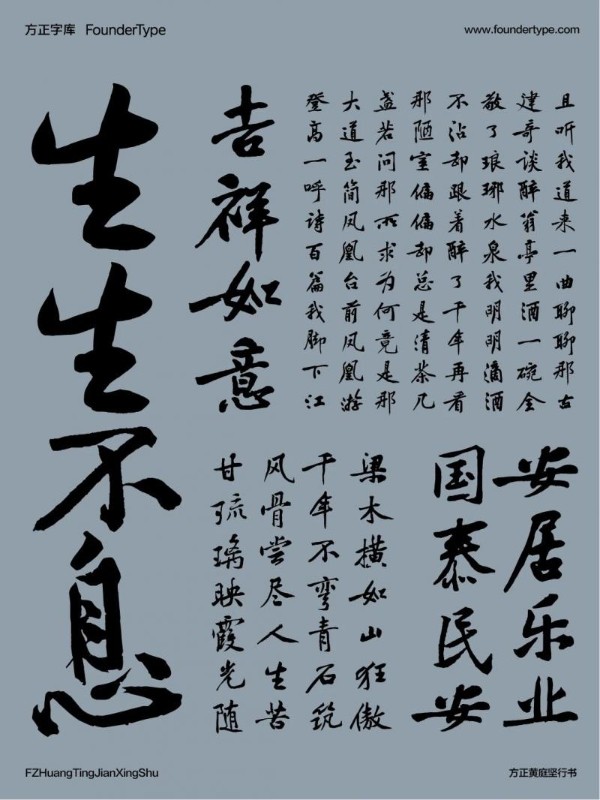 方正字库 FounderType
www.foundertype.com
生生不息
吉祥如意
且听我道来一曲聊聊那古
建哥谈醉翁亭里酒一碗全
敬了琅琊水泉我明明滴酒
不沾却跟着醉了千年再看
那陋室偏偏却总是清茶几
盏若问那所求为何竟是那
大道玉简凤凰台前凤凰游
登高一呼诗百篇我脚下江
安居乐业
国泰民安
梁木横如山狂傲
千年不弯青石筑
风骨尝尽人生苦
甘琉璃映霞光随
FZHuangTingJianXingShu
方正黄庭坚行书